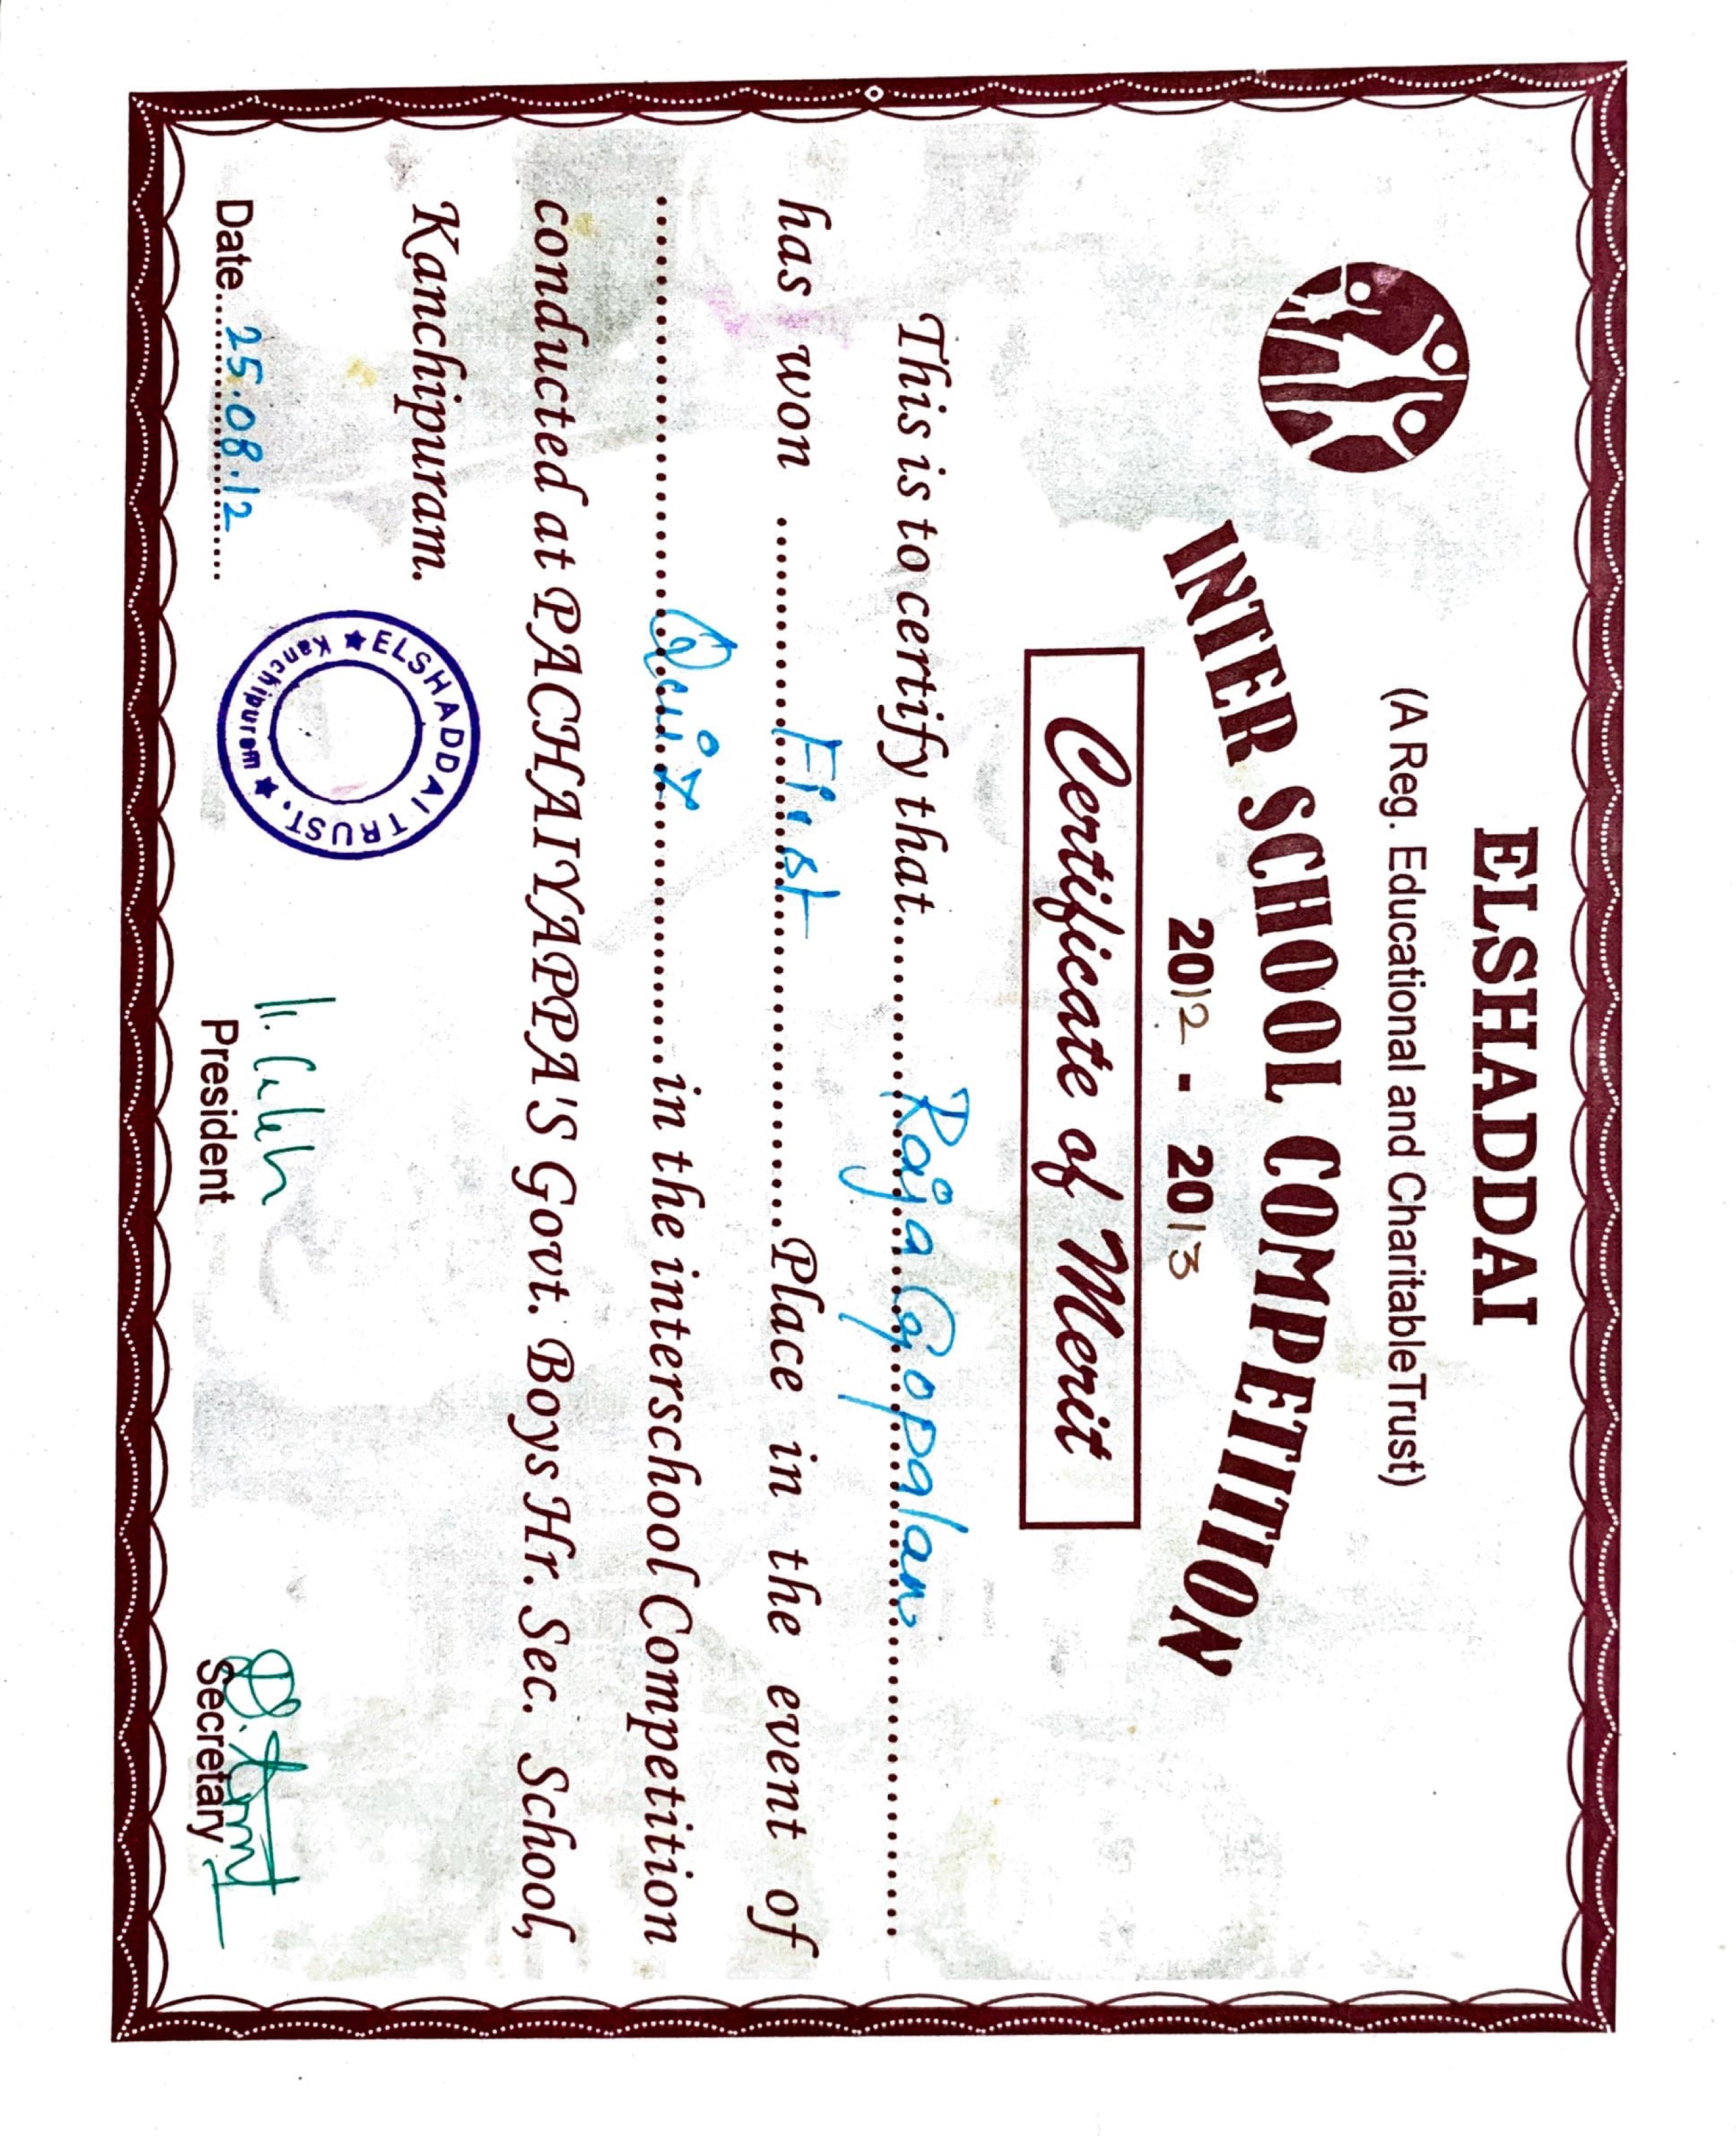 ELSHADDAI
(A Reg. Educational and Charitable Trust)
INTER SCHOOL COMPETITION
2012 - 2013
Certificate of Merit
This is to certify that.........Raja Gopalan.........
has won ............First............Place in the event of
............Quiz............in the interschool Competition
conducted at PACHAIYAPPA'S Govt. Boys Hr. Sec. School,
Kanchipuram.
★ ELSHADDAI TRUST, ★ Kanchipuram
Date...25.08.12...
K. Caleb
President
Secretary